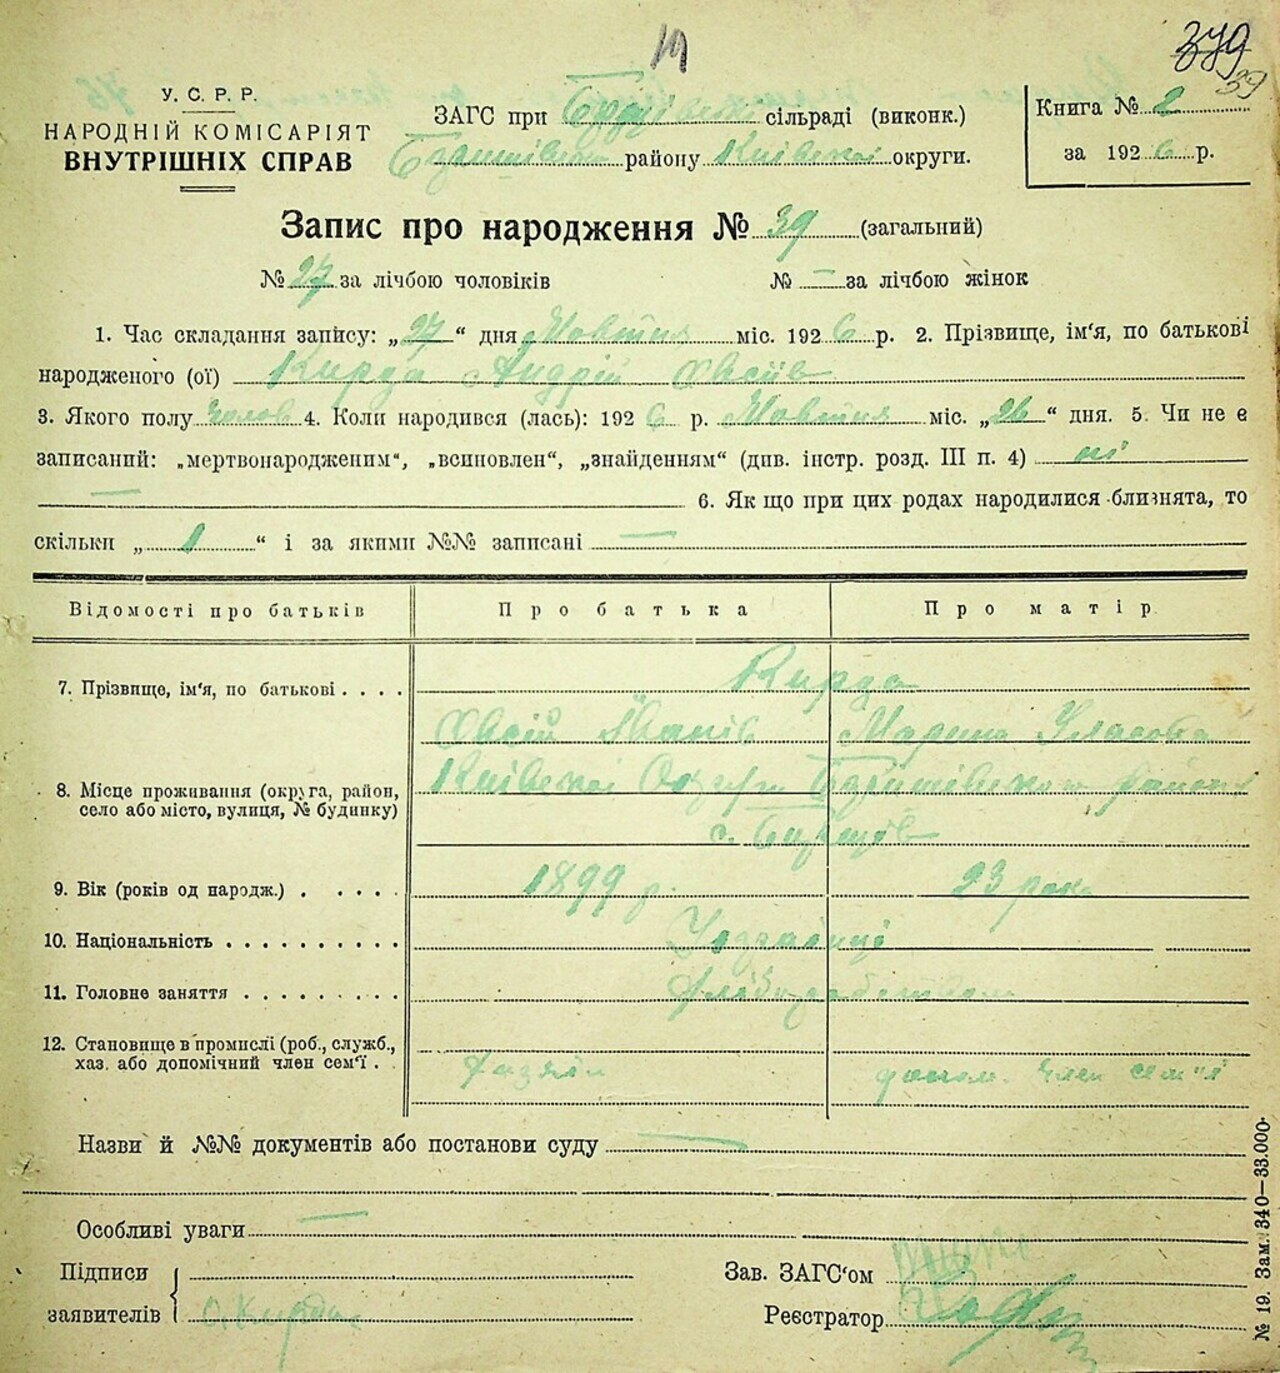 19
379
39
У. С. Р. Р.
НАРОДНІЙ КОМІСАРІЯТ
ВНУТРІШНІХ СПРАВ
ЗАГС при сільраді (виконк.)
району Київської округи.
Книга № 2
за 1926 р.
Запис про народження № 39 (загальний)
№ 27 за лічбою чоловіків № — за лічбою жінок
1. Час складання запису: „27“ дня Жовтня міс. 1926 р. 2. Прізвище, ім‘я, по батькові
народженого (ої) Кирда Андрій Овсіїв
3. Якого полу чолов 4. Коли народився (лась): 1926 р. Жовтня міс. „26“ дня. 5. Чи не є
записаний: „мертвонародженим“, „всиновлен“, „знайденням“ (див. інстр. розд. III п. 4) ні
— 6. Як що при цих родах народилися близнята, то
скільки „1“ і за якими №№ записані —
Відомості про батьків Про батька Про матір
7. Прізвище, ім‘я, по батькові . . . . Кирда
Овсій Іванів Марина Уласова
8. Місце проживання (округа, район, Київської Округи району
село або місто, вулиця, № будинку) с.
9. Вік (років од народж.) . . . . . 1899 р. 23 роки
10. Національність . . . . . . . . . . Українці
11. Головне заняття . . . . . . . . . Хліборобством
12. Становище в промислі (роб., служб.,
хаз. або допомічний член сем‘ї . . Хазяїн допом. член сем"ї
Назви й №№ документів або постанови суду —
Особливі уваги —
Підписи
заявителів О. Кирда
Зав. ЗАГС‘ом
Реєстратор
№ 19. Зам. 340—33.000